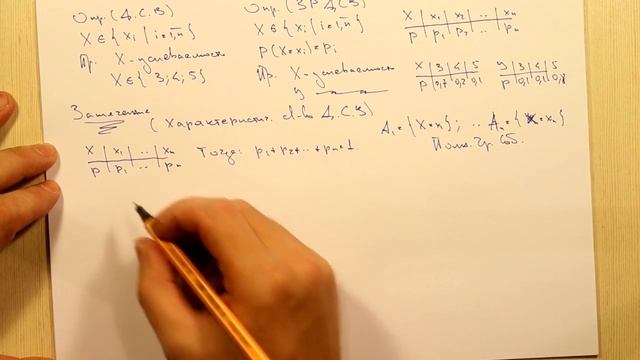 Опр. (Д.С.В)
X ∈ { xᵢ | i=1,n }
Пр. X - успеваемость
X ∈ { 3; 4; 5 }
Опр. (ЗР ДСВ)
X ∈ { xᵢ | i=1,n }
P(X=xᵢ) = pᵢ
Пр. X - успеваемость
y
X | x₁ | x₂ | .. | xₙ
P | p₁ | p₂ | .. | pₙ
X | 3 | 4 | 5
P | 0,7 | 0,2 | 0,1
y | 3 | 4 | 5
P | 0,1 | 0,1
Замечание (Характеристич. св-во Д.С.В)
X | x₁ | .. | xₙ
P | p₁ | .. | pₙ
Тогда: p₁+p₂+..+pₙ=1.
A₁={X=x₁}; .. Aₙ={X=xₙ}
Полн. гр. соб.